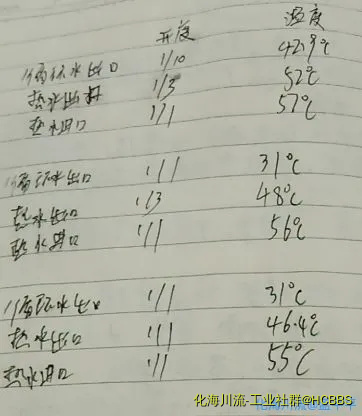 开度 温度
循环水出口 1/10 42.9℃
热水出口 1/3 52℃
热水进口 1/1 57℃
循环水出口 1/1 31℃
热水出口 1/3 48℃
热水进口 1/1 56℃
循环水出口 1/1 31℃
热水出口 1/1 46.4℃
热水进口 1/1 55℃
化海川流-工业社群@HCBBS